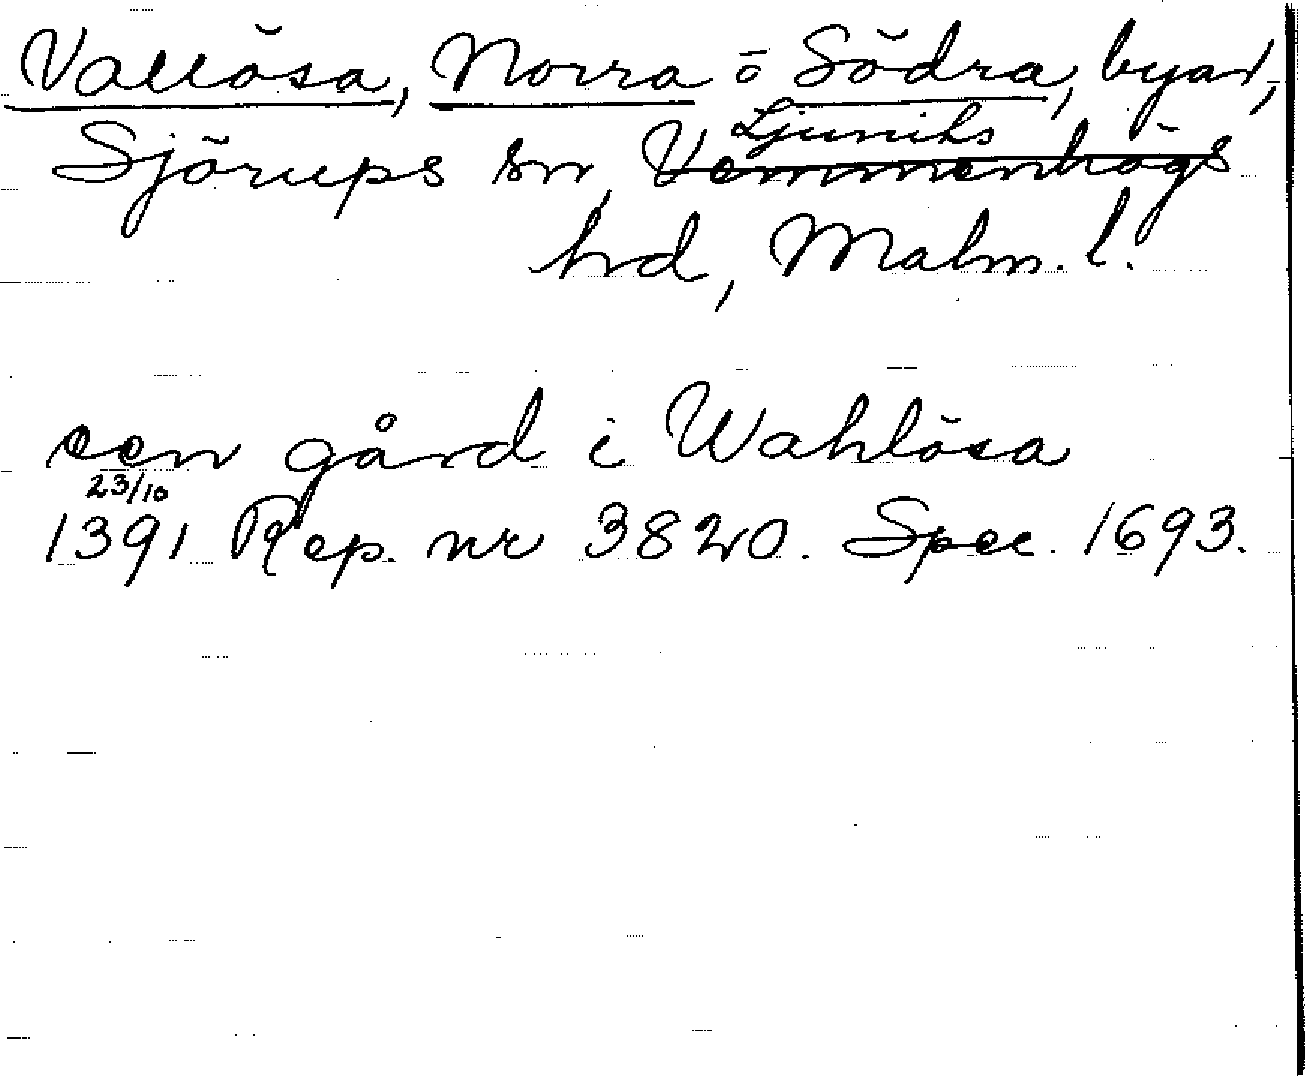 Vallösa, Norra o Södra, byar,
Ljunits
Sjörups sn, Vemmenhögs
hd, Malm. l.
een gård i Wahlösa
23/10
1391 Rep. nr 3820. Spec. 1693.